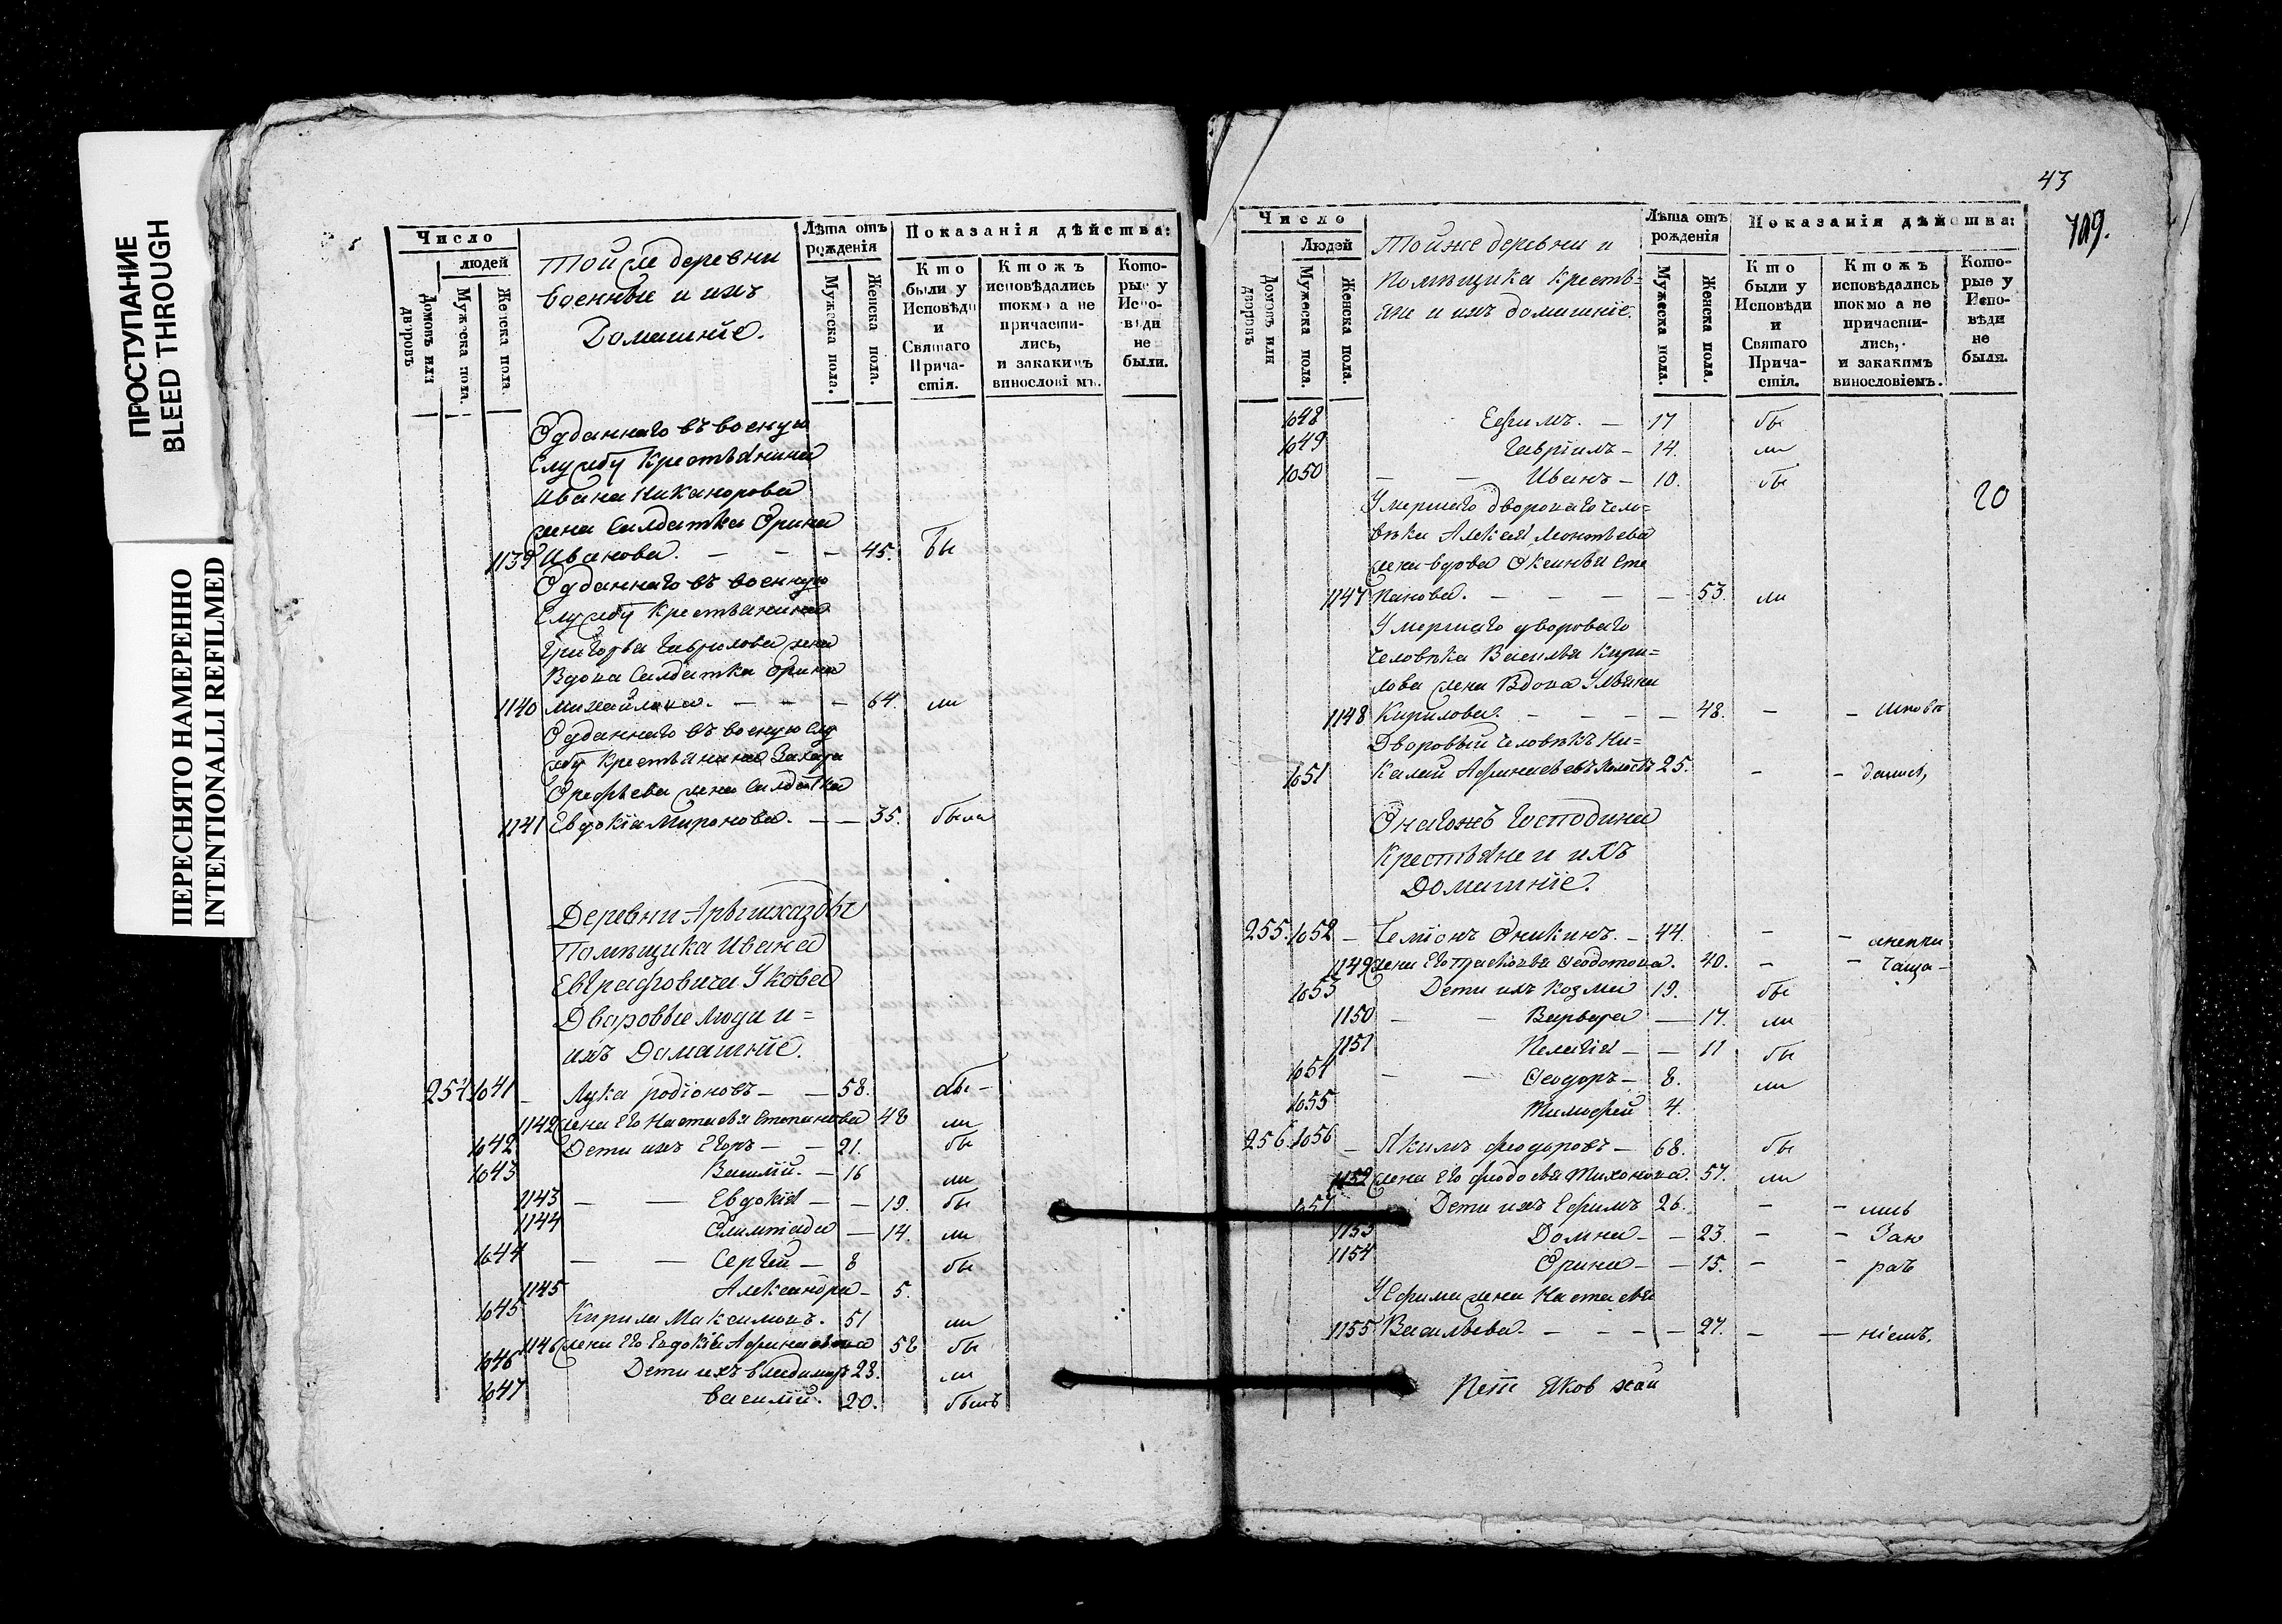 ПРОСТУПАНИЕ
BLEED THROUGH
ПЕРЕСНЯТО НАМЕРЕННО
INTENTIONALLI REFILMED
Число
людей
Домовъ или дворовъ
Мужеска пола.
Женска пола.
Той же деревни
военные и ихъ
Домашніе.
Лѣта отъ рожденія
Мужеска пола.
Женска пола.
Показанія дѣйства:
Кто были у Исповѣди и Святаго Причастія.
Ктожъ исповѣдались токмо а не причастились, и закакимъ винословіемъ.
Которые у Исповѣди не были.
Одданнаго въ военную
службу Крестьянина
Ивана Никанорова
жена Салдатка Орина
1139 Иванова. — — — 45. бы
Одданнаго въ военную
Службу Крестьянина
Григорья Гаврилова жена
Вдова Салдатка Орина
1140 Михайлова. — — — 64. ли
Одданнаго въ военую слу
жбу Крестьянина Захара
Орефьева жена Салдатка
1141 Евдокіа Миронова. — — 35. была
Деревни
Помѣщика Ивана
Евграфовича Укова
Дворовые люди и=
ихъ Домашніе.
254 1041 — Лука родіоновъ — — 58. бы —
1142 жена Его Настасья Степанова 48 ли
1042 Дети ихъ Егоръ — — 21. бы
1043 Василій. — 16 ли
1143 — — Евдокіа — — 19. бы
1144 Олимпіада — 14. ли
1044 — — Сергей — 8 бы
1145 Александра — 5.
1045 Кирила Максимовъ. 51 ли
1146 жена Его Евдокіа Афанасьева 52 бы
1046 Дети ихъ Владимиръ 23. ли
1047 Василій. 20. былъ
43
709.
Число
Людей
Домовъ или дворовъ
Мужеска пола.
Женска пола.
Тойже деревни и
помѣщика крестья=
ане и ихъ домашніе.
Лѣта отъ рожденія
Мужеска пола.
Женска пола.
Показанія дѣйства:
Кто были у Исповѣди и Святаго Причастія.
Ктожъ исповѣдались токмо а не причастились, и закакимъ винословіемъ.
Которые у Исповѣди не были.
1048 Ефимъ. — 17 бы
1049 Гавріилъ — 14. ли
1050 — — Иванъ — 10. бы
20
Умершаго дворового чело=
вѣка Алексея Леонтьева
жена вдова Оксинья Сте
1147 панова. — — — — 53. ли
Умершаго дворового
Человѣка Василья Кири=
лова жена Вдова Ульяна
1148 Кирилова. — — — — 48. — — исповѣ
Дворовый человѣкъ Ни=
1051 калай Афанасьевъ холостъ 25. — — дались,
Онагожъ Господина
Крестьяне и ихъ
Домашніе.
255. 1052 — Семіонъ Оникинъ. — 44. — — анепри
1149 жена Его Прасковья Феодотова. 40. — — чаща —
1053 Дети ихъ Козма 19. бы
1150 — — Варвара — 17. ли
1151 Пелагіа — — 11 бы
1054 — — Феодоръ — 8. ли
1055 Тимофей 4.
256. 1056 — Якимъ Феодоровъ — 68. бы
1152 жена Его Федосья Тихонова. 57. ли
1057 Дети ихъ Ефимъ 26. — — лись
1153 Домна — — 23. — — Заю
1154 Орина — — 15. — — разъ
У Ефима жена Настасья
1155 Васильева. — — — — 27. — — ніемъ.